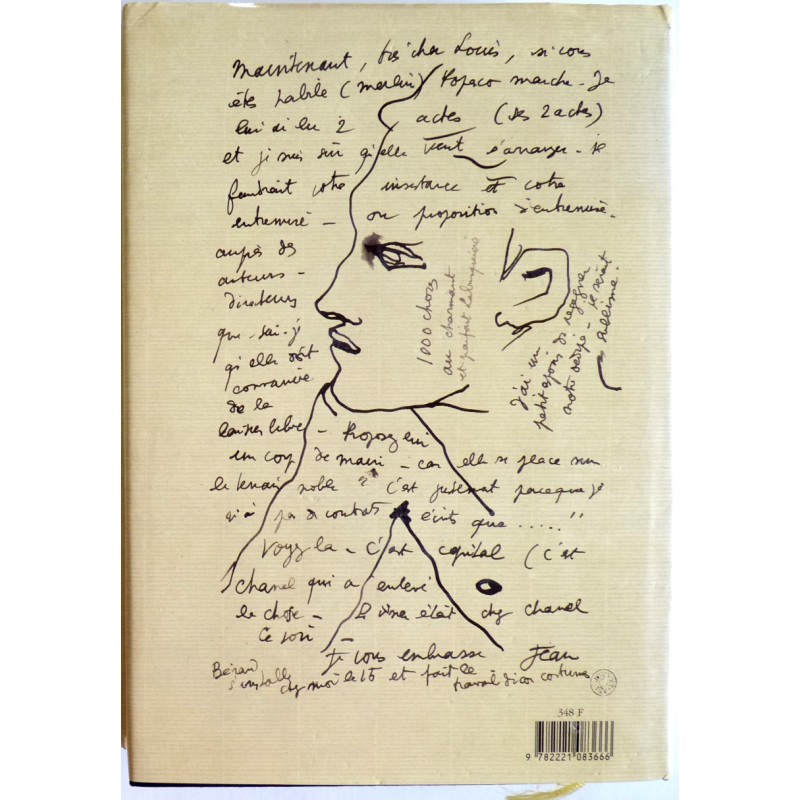 Maintenant, très cher Louis, si vous
êtes habile (merlin) Popesco marche - Je
lui ai lu 2 actes (ses 2 actes)
et je suis sûr qu'elle veut s'arranger - je
faudrait votre insistance et votre
entremise - ou proposition d'entremise.
auprès des
auteurs -
directeurs
que - sai - je
qu'elle soit
convaincue
de la
laisser libre - Proposez lui
un coup de main - car elle se place sur
le terrain noble " c'est justement parce que je
n'ai pas de contrats écrits que ..... "
Voyez la - c'est capital (c'est
Chanel qui a enlevé
la chose - Le dîner était chez Chanel
ce soir -
Je vous embrasse Jean
Bérard
s'installe chez moi le 15 et fait le travail décor costumes
1000 choses
au charmant
et parfait
J'ai un
petit espoir de regagner
notre - ce serait
sublime.
348 F
9 782221 083666